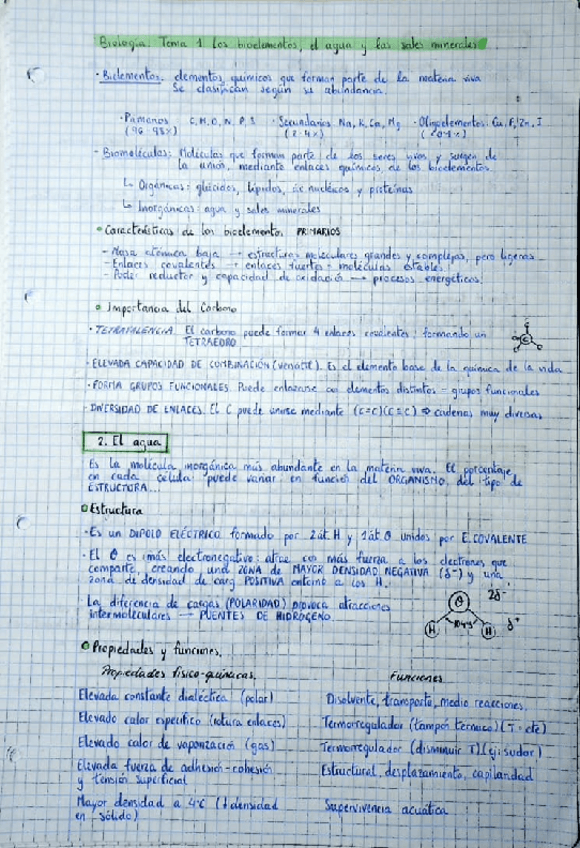 Biología. Tema 1 Los bioelementos, el agua y las sales minerales
· Bielementos: elementos químicos que forman parte de la materia viva
Se clasifican según su abundancia.
· Primarios C, H, O, N, P, S · Secundarios Na, K, Ca, Mg · Oligoelementos: Cu, F, Zn, I
(96-98%) (2-4%)
- Biomoléculas: Moléculas que forman parte de los seres vivos y surgen de
la unión, mediante enlaces químicos de los bioelementos.
↳ Orgánicas: glúcidos, lípidos, ác nucleicos y proteínas
↳ Inorgánicas: agua y sales minerales
Características de los bioelementos PRIMARIOS
- Masa atómica baja → estructuras moleculares grandes y complejas, pero ligeras
- Enlaces covalentes → enlaces fuertes = moléculas estables
- Poder reductor y capacidad de oxidación → procesos energéticos
Importancia del Carbono
· TETRAVALENCIA. El carbono puede formar 4 enlaces covalentes, formando un
TETRAEDRO
C
- ELEVADA CAPACIDAD DE COMBINACIÓN (versátil). Es el elemento base de la química de la vida
- FORMA GRUPOS FUNCIONALES. Puede enlazarse con elementos distintos = grupos funcionales
- DIVERSIDAD DE ENLACES. El C puede unirse mediante (C=C)(C≡C) ⇒ cadenas muy diversas
2. El agua
Es la molécula inorgánica más abundante en la materia viva. El porcentaje
en cada célula puede variar en función del ORGANISMO, del tipo de
ESTRUCTURA...
Estructura
- Es un DIPOLO ELÉCTRICO formado por 2 át. H y 1 át. O unidos por E. COVALENTE
- El O es más electronegativo: atrae con más fuerza a los electrones que
comparte, creando una ZONA de MAYOR DENSIDAD NEGATIVA (δ-) y una
zona de densidad de carg POSITIVA entorno a los H.
La diferencia de cargas (POLARIDAD) provoca atracciones
intermoleculares → PUENTES DE HIDRÓGENO.
O 2δ-
H H δ+
Propiedades y funciones.
Propiedades físico-químicas. Funciones
Elevada constante dialéctica (polar) Disolvente, transporte, medio reacciones.
Elevado calor específico (rotura enlaces) Termorregulador (tampón térmico) (T = cte)
Elevado calor de vaporización (gas) Termorregulador (disminuir T) (ej: sudor)
Elevada fuerza de adhesión-cohesión Estructural, desplazamiento, capilaridad
y tensión superficial
Mayor densidad a 4ºC (↓ densidad Supervivencia acuática
en sólido)